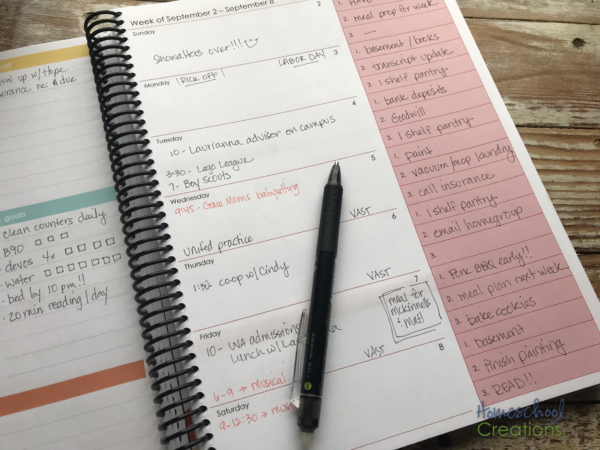 up w/ Hope
re: due
goals
clean counters daily
B90
devos 4x
water
- bed by 10 pm!!
- 20 min reading/day
Week of September 2 – September 8
Sunday
2
Showalters over!!!
Monday
RICK OFF
LABOR DAY
3
Tuesday
4
10 - Laurianna advisor on campus
3:30 - Lego League
7 - Boy Scouts
Wednesday
5
9:45 - Grace Moms babysitting
VAST
Unified practice
Thursday
6
1:30 co-op w/ Cindy
VAST
Friday
7
10 - WA admissions
lunch w/
meal for
McKinneys
+ Matt!
VAST
6-9 → musical
Saturday
8
9-12:30 →
1.
2. meal prep for week
3. —
1. basement / books
2. transcript update
3. 1 shelf pantry
1. bank deposits
2. Goodwill
3. 1 shelf pantry
1. paint
2. vacuum/mop laundry
3. call insurance
1. 1 shelf pantry
2. email homegroup
3.
1. Pork BBQ early!!
2. meal plan next week
3. bake cookies
1. basement
2. finish painting
3. READ!!
Homeschool
Creations